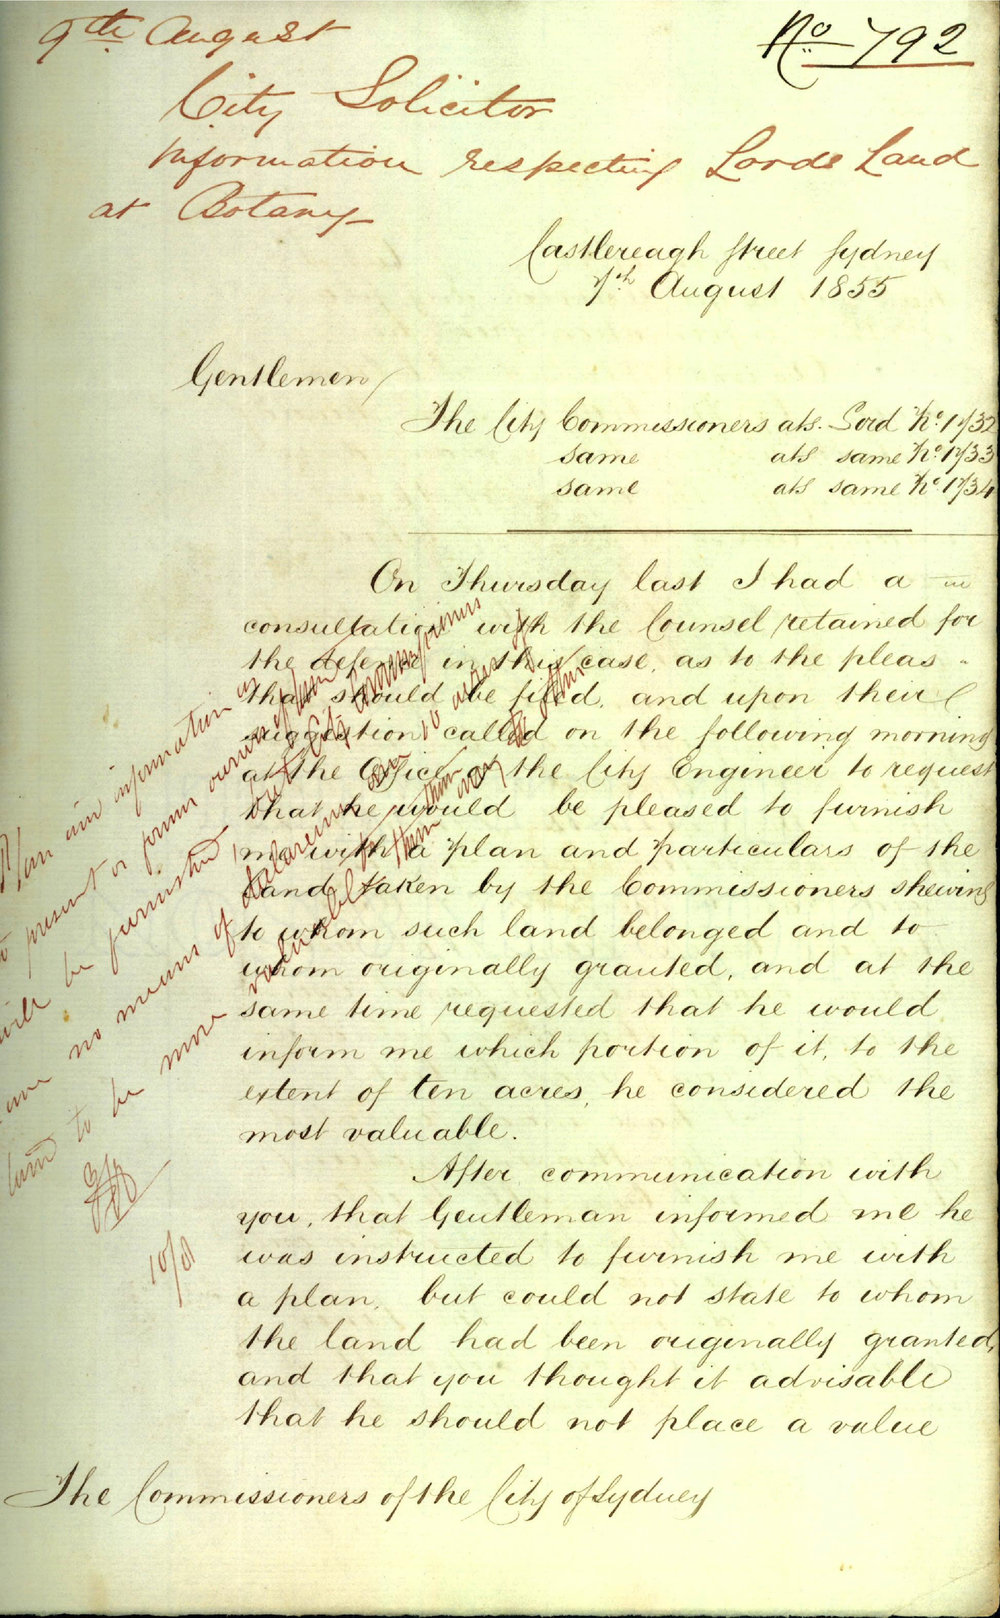 9th August
No 792
City Solicitor
Information respecting Lords Land
at Botany
Castlereagh Street Sydney
7th August 1855
Gentlemen,
The City Commissioners ats. Lord No. 1732
same ats same No. 1733
same ats same No. 1734
On Thursday last I had a
consultation with the Counsel retained for
the defence in this case, as to the pleas
that should be filed, and upon their
suggestion called on the following morning
at the Office of the City Engineer to request
that he would be pleased to furnish
me with a plan and particulars of the
Land taken by the Commissioners shewing
to whom such land belonged and to
whom originally granted, and at the
same time requested that he would
inform me which portion of it, to the
extent of ten acres, he considered the
most valuable.
After communication with
you, that Gentleman informed me he
was instructed to furnish me with
a plan, but could not state to whom
the land had been originally granted,
and that you thought it advisable
that he should not place a value
The Commissioners of the City of Sydney
Plan and information as
to present or former owners of land
will be furnished, but City Commissioners
have no means of declaring ten acres of
land to be more valuable than any other
10/8